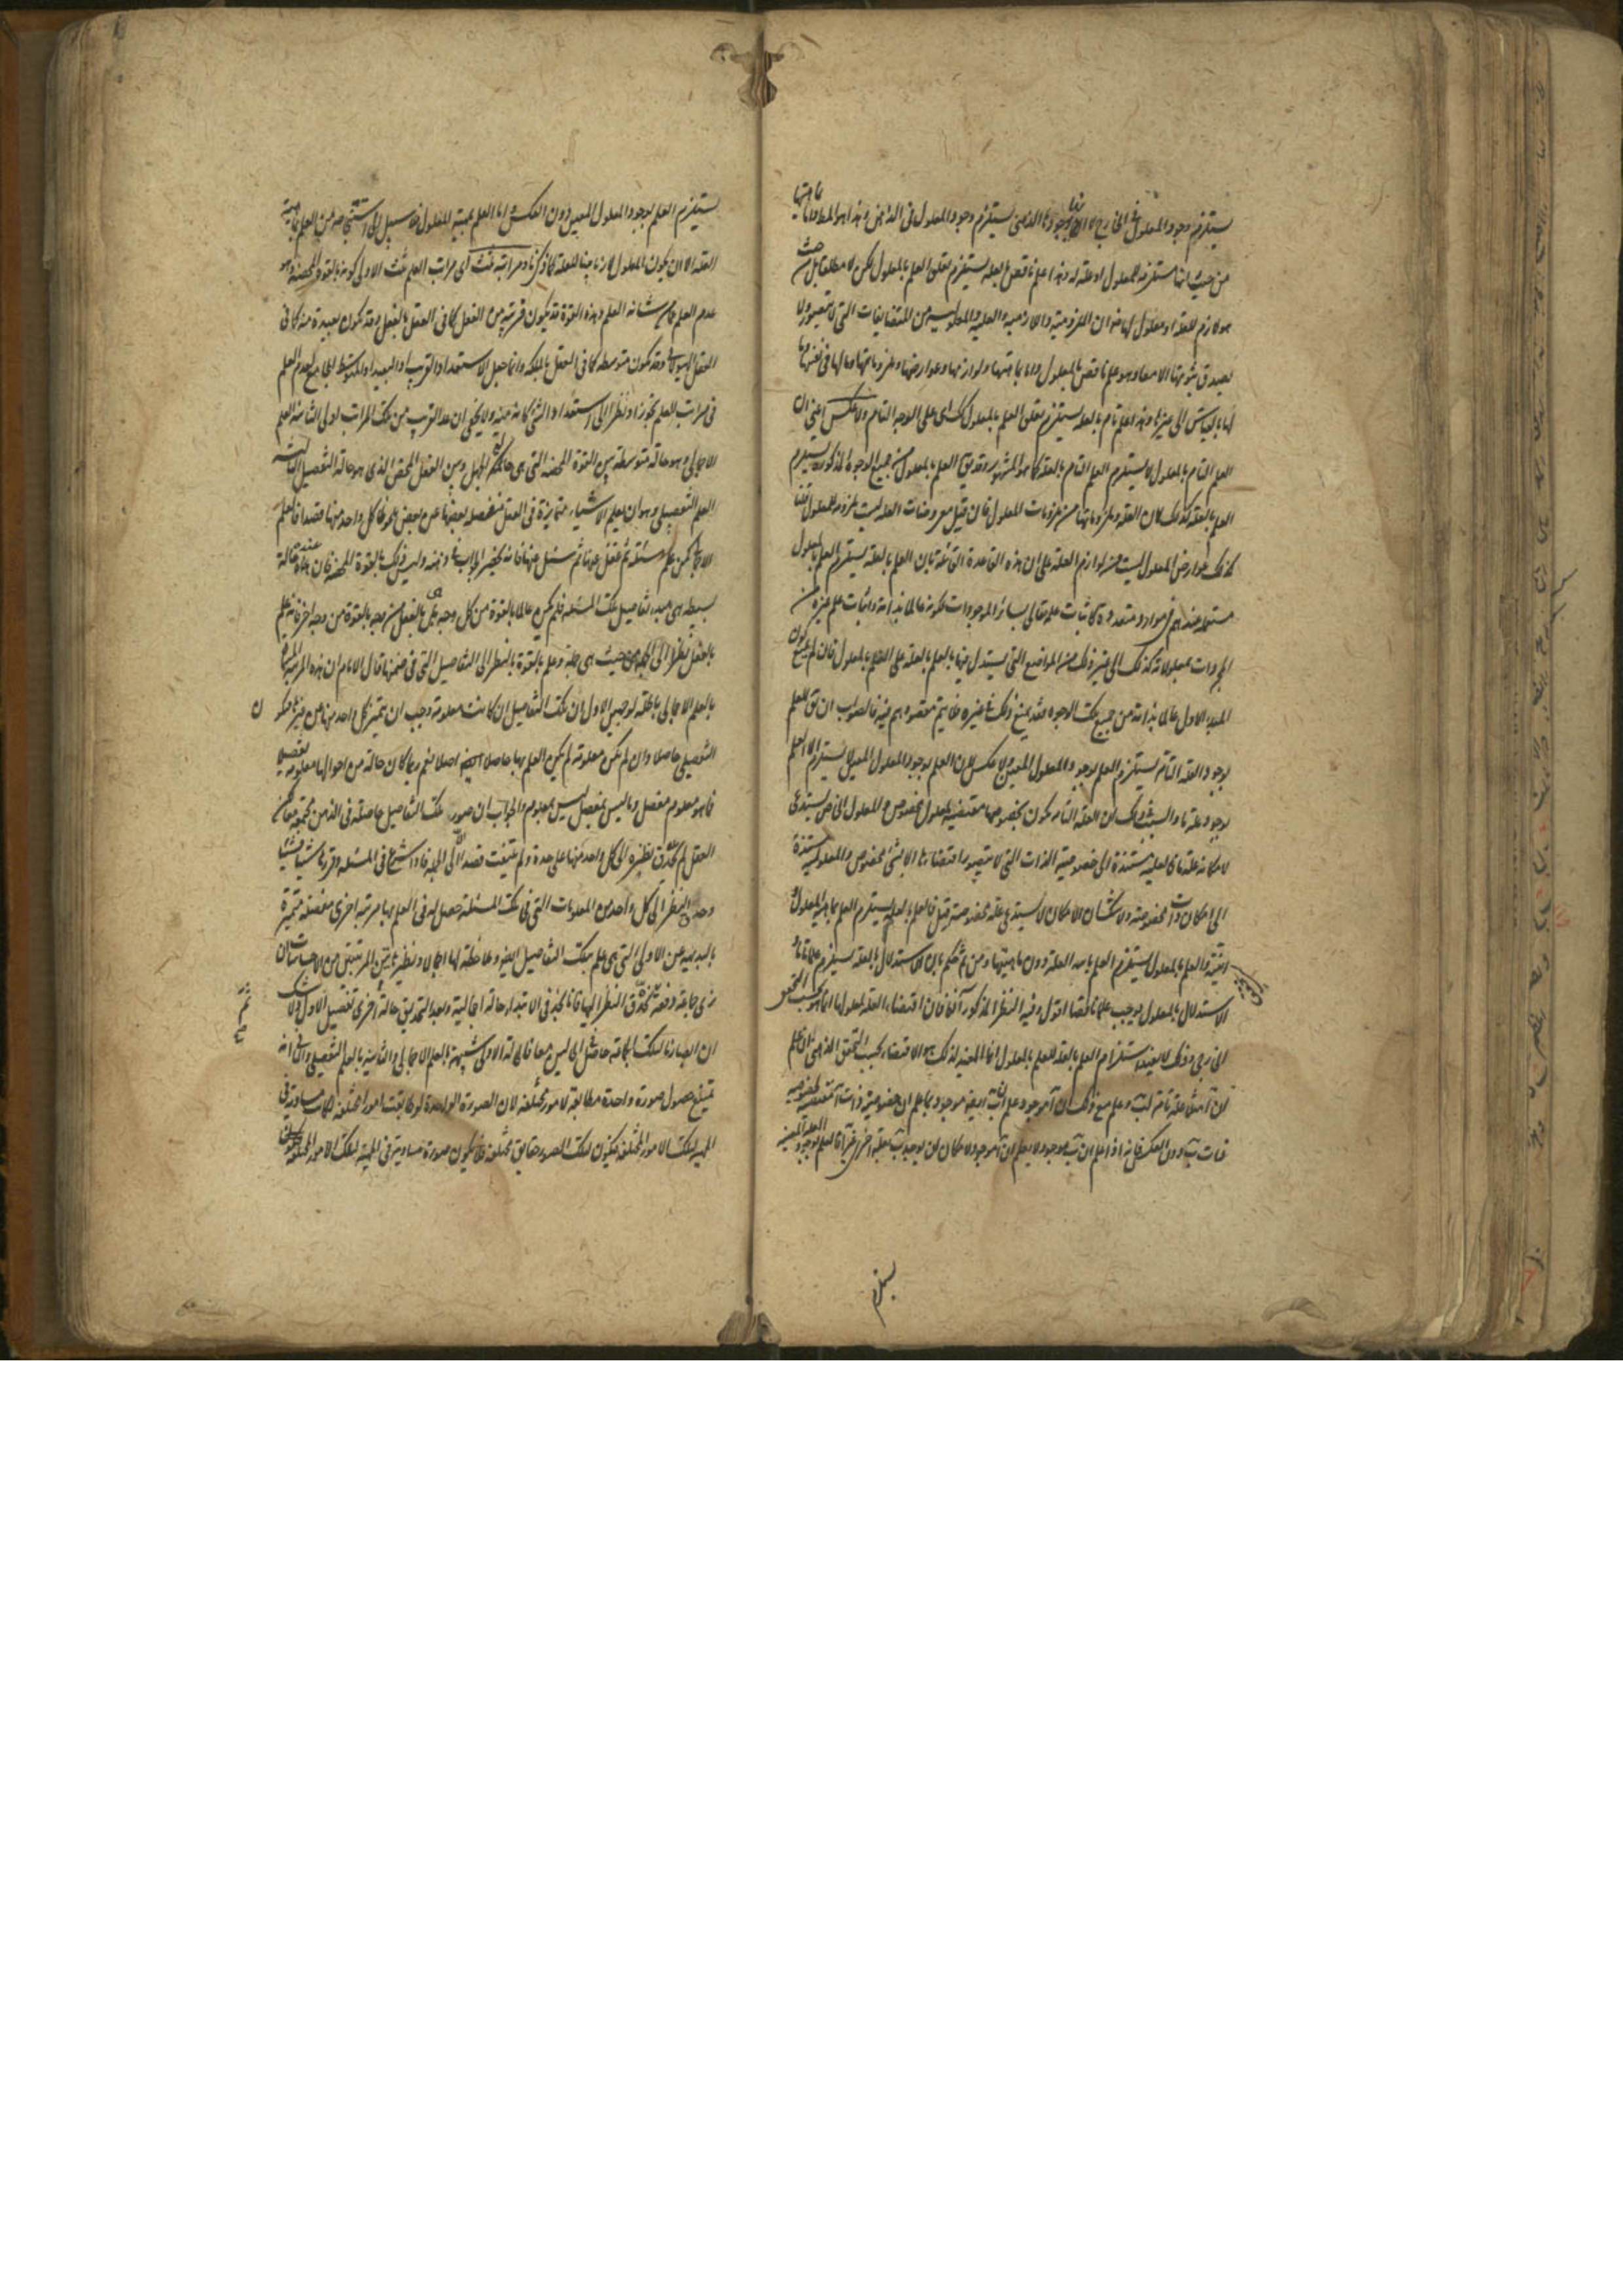 يستلزم وجود المعلول في الخارج كذا وجودها الذهني يستلزم وجود المعلول في الذهن وهذا هو المط واما بماهيتها
من حيث انها مستلزمة للمعلول او علة له وهذا علم ناقص بالعلة يستلزم تعلق العلم بالمعلول لكن لا مطلقا بل من حيث
هو لازم للعلة او معلول لها فان الملزومية واللازمية والعلية والمعلولية من المتضايفات التي لا يتصور ولا
يصدق بثبوتها الا معا وهو علم ناقص بالمعلول واما بماهيتها ولوازمها وعوارضها وملزوماتها وما لها في نفسها وما
لها بالقياس الى غيرها وهذا علم تام بالعلة يستلزم تعلق العلم بالمعلول كك اي على الوجه التام ولا عكس اعني ان
العلم التام بالمعلول لا يستلزم العلم التام بالعلة كما هو المشهور وقد يق العلم بالمعلول من جميع الوجوه المذكورة يستلزم
العلم بالعلة كذلك لان العلة وملزوماتها من ملزومات المعلول فان قيل معروضات العلة ليست ملزومة للمعلول قلنا
كذلك عوارض المعلول ليست من لوازم العلة على ان هذه القاعدة القائلة بان العلم بالعلة يستلزم العلم بالمعلول
مستعملة عندهم في موارد متعددة كاثبات علمه تعالى بسائر الموجودات لكونه عالما بذاته واثبات علم غيره من
المجردات بمعلولاته كذلك الى غير ذلك من المواضع التي يستدل فيها بالعلم بالعلة على العلم بالمعلول فان لم يكن
المبدء الاول عالما بذاته من جميع تلك الوجوه فقد يمنع ذلك في غيره فلا يتم مقصودهم فيه فالصواب ان يق العلم
بوجود العلة التامة يستلزم العلم بوجود المعلول المعين ولا عكس لان العلم بوجود المعلول المعين لا يستلزم الا العلم
بوجود علة ما والسبب في ذلك ان العلة التامة تكون بخصوصها مقتضية لمعلول مخصوص والمعلول الخاص يستدعي
لامكانه علة ما فالعلية مستندة الى خصوصية الذات التي لا يتصور اقتضاؤها الا لشيء مخصوص والمعلولية مستندة
الى امكان ذات مخصوصة ولا شك ان الامكان لا يستدعي علة مخصوصة قيل فالعلم بالعلة يستلزم العلم بماهية المعلول و
انيته والعلم بالمعلول يستلزم العلم بانية العلة دون ماهيتها ومن ثم حكم بان الاستدلال بالعلة يستلزم علما تاما و
الاستدلال بالمعلول يوجب علما ناقصا اقول وفيه النظر المذكور آنفا فان اقتضاء العلة لمعلولها انما هو بحسب التحقق
الخارجي وذلك لا يفيد استلزام العلم بالعلة للعلم بالمعلول انما المفيد لذلك هو الاقتضاء بحسب التحقق الذهني
ان آ مثلا علة تامة لب وعلم مع ذلك ان آ موجود علم ان ب ايضا موجود
ذات ب دون العكس فانه اذا علم ان ب موجود لا يعلم ان آ موجود لامكان ان يوجد ب بعلة اخرى غير آ فالعلم بوجود العلة المعينة
يستلزم
يستلزم العلم بوجود المعلول المعين دون العكس واما العلم بماهية المعلول فلا سبيل الى استنتاجه من العلم بماهية
العلة الا ان يكون المعلول لازما بينا للعلة كما ذكرنا ومراتبه ثلث اي مراتب العلم ثلث الاولى كونه بالقوة المحضة وهو
عدم العلم عما من شانه العلم وهذه القوة قد يكون قريبة من الفعل كما في العقل بالفعل وقد تكون بعيدة منه كما في
العقل الهيولاني وقد تكون متوسطة كما في العقل بالملكة وانما جعل الاستعداد القريب او البعيد او المتوسط الجامع لعدم العلم
في مراتب العلم تجوزا او نظرا الى استعداد الشيء كانه منه ولا يخفى ان عد القريب من تلك المراتب اولى الثانية العلم
الاجمالي وهو حالة متوسطة بين القوة المحضة التي هي حالة الجهل وبين الفعل المحض الذي هو حالة التفصيل الثالثة
العلم التفصيلي وهو ان يعلم الاشياء متمايزة في العقل منفصلة بعضها عن بعض ملحوظا كل واحد منها قصدا فالعلم
الاجمالي كمن علم مسئلة ثم غفل عنها ثم سئل عنها فانه يحضر الجواب في ذهنه وليس ذلك بالقوة المحضة فان عنده حالة
بسيطة هي مبدء تفاصيل تلك المسئلة فلم يكن عالما بالقوة من كل وجه بل بالفعل من وجه بالقوة من وجه اخر فانه علم
بالفعل نظرا الى الجملة من حيث هي جملة وعلم بالقوة بالنظر الى التفاصيل التي في ضمنها قال الامام ان هذه المرتبة المسماة
بالعلم الاجمالي باطلة لوجهين الاول ان تلك التفاصيل ان كانت معلومة وجب ان يتميز كل واحد منها عن غيره فيكون
التفصيلي حاصلا وان لم تكن معلومة لم يكن العلم بها حاصلا اصلا نعم ربما كان حالة من احوالها معلومة تفصيلا
فما هو معلوم مفصل وما ليس بمفصل ليس بمعلوم والجواب ان صور تلك التفاصيل حاصلة في الذهن مجتمعة لكن
العقل لم يحدق نظره الى كل واحد منها على حدة ولم يلتفت قصدا الا الى الجملة فاذا شرع في المسئلة وقررها شيئا فشيئا
وحدق النظر الى كل واحد من المعلومات التي في تلك المسئلة حصل له في العلم بها مرتبة اخرى مفصلة متميزة
بالبديهة عن الاولى التي هي علم بتلك التفاصيل ايضا وملاحظة لها اجمالا ونظير هاتين المرتبتين من الاحساسات ان
نرى جماعة دفعة ثم نحدق النظر اليها فانا نجد في الابتداء حالة اجمالية وبعد التحديق حالة اخرى تفصيل الاولى ولا شك
ان ابصارنا لتلك الجماعة حاصل في الحالين معا فالحالة الاولى شبيهة بالعلم الاجمالي والثانية بالعلم التفصيلي والثاني انه
يمتنع حصول صورة واحدة مطابقة لامور مختلفة لان الصورة الواحدة لو طابقت امورا مختلفة لكانت مساوية في
الماهية لتلك الامور المختلفة فيكون لتلك الصور حقايق مختلفة فلا تكون صورة مساوية في الماهية لتلك الامور المختلفة